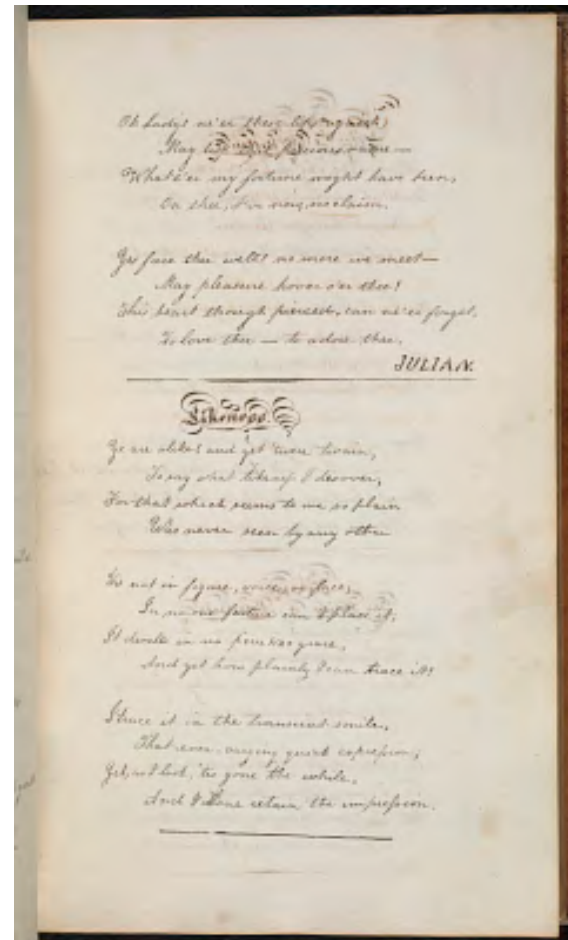 Oh Lady! ne'er these lips again,
May precious name —
Whate'er my fortune might have been,
On thee, I've now, no claim.
Yet fare thee well! no more we meet —
May pleasure hover o'er thee!
This heart though pierced, can ne'er forget,
To love thee — to adore thee.
JULIAN.
Likeness.
Ye are alike! and yet 'twere vain,
To say what likeness I discover,
For that which seems to me so plain
Was never seen by any other
'Tis not in figure, voice, or face,
In no one feature can I place it,
It dwells in no grace,
And yet how plainly I can trace it!
I trace it in the transient smile,
That ever-varying quick expression;
Yet, as I look, 'tis gone the while,
And I alone retain the impression.